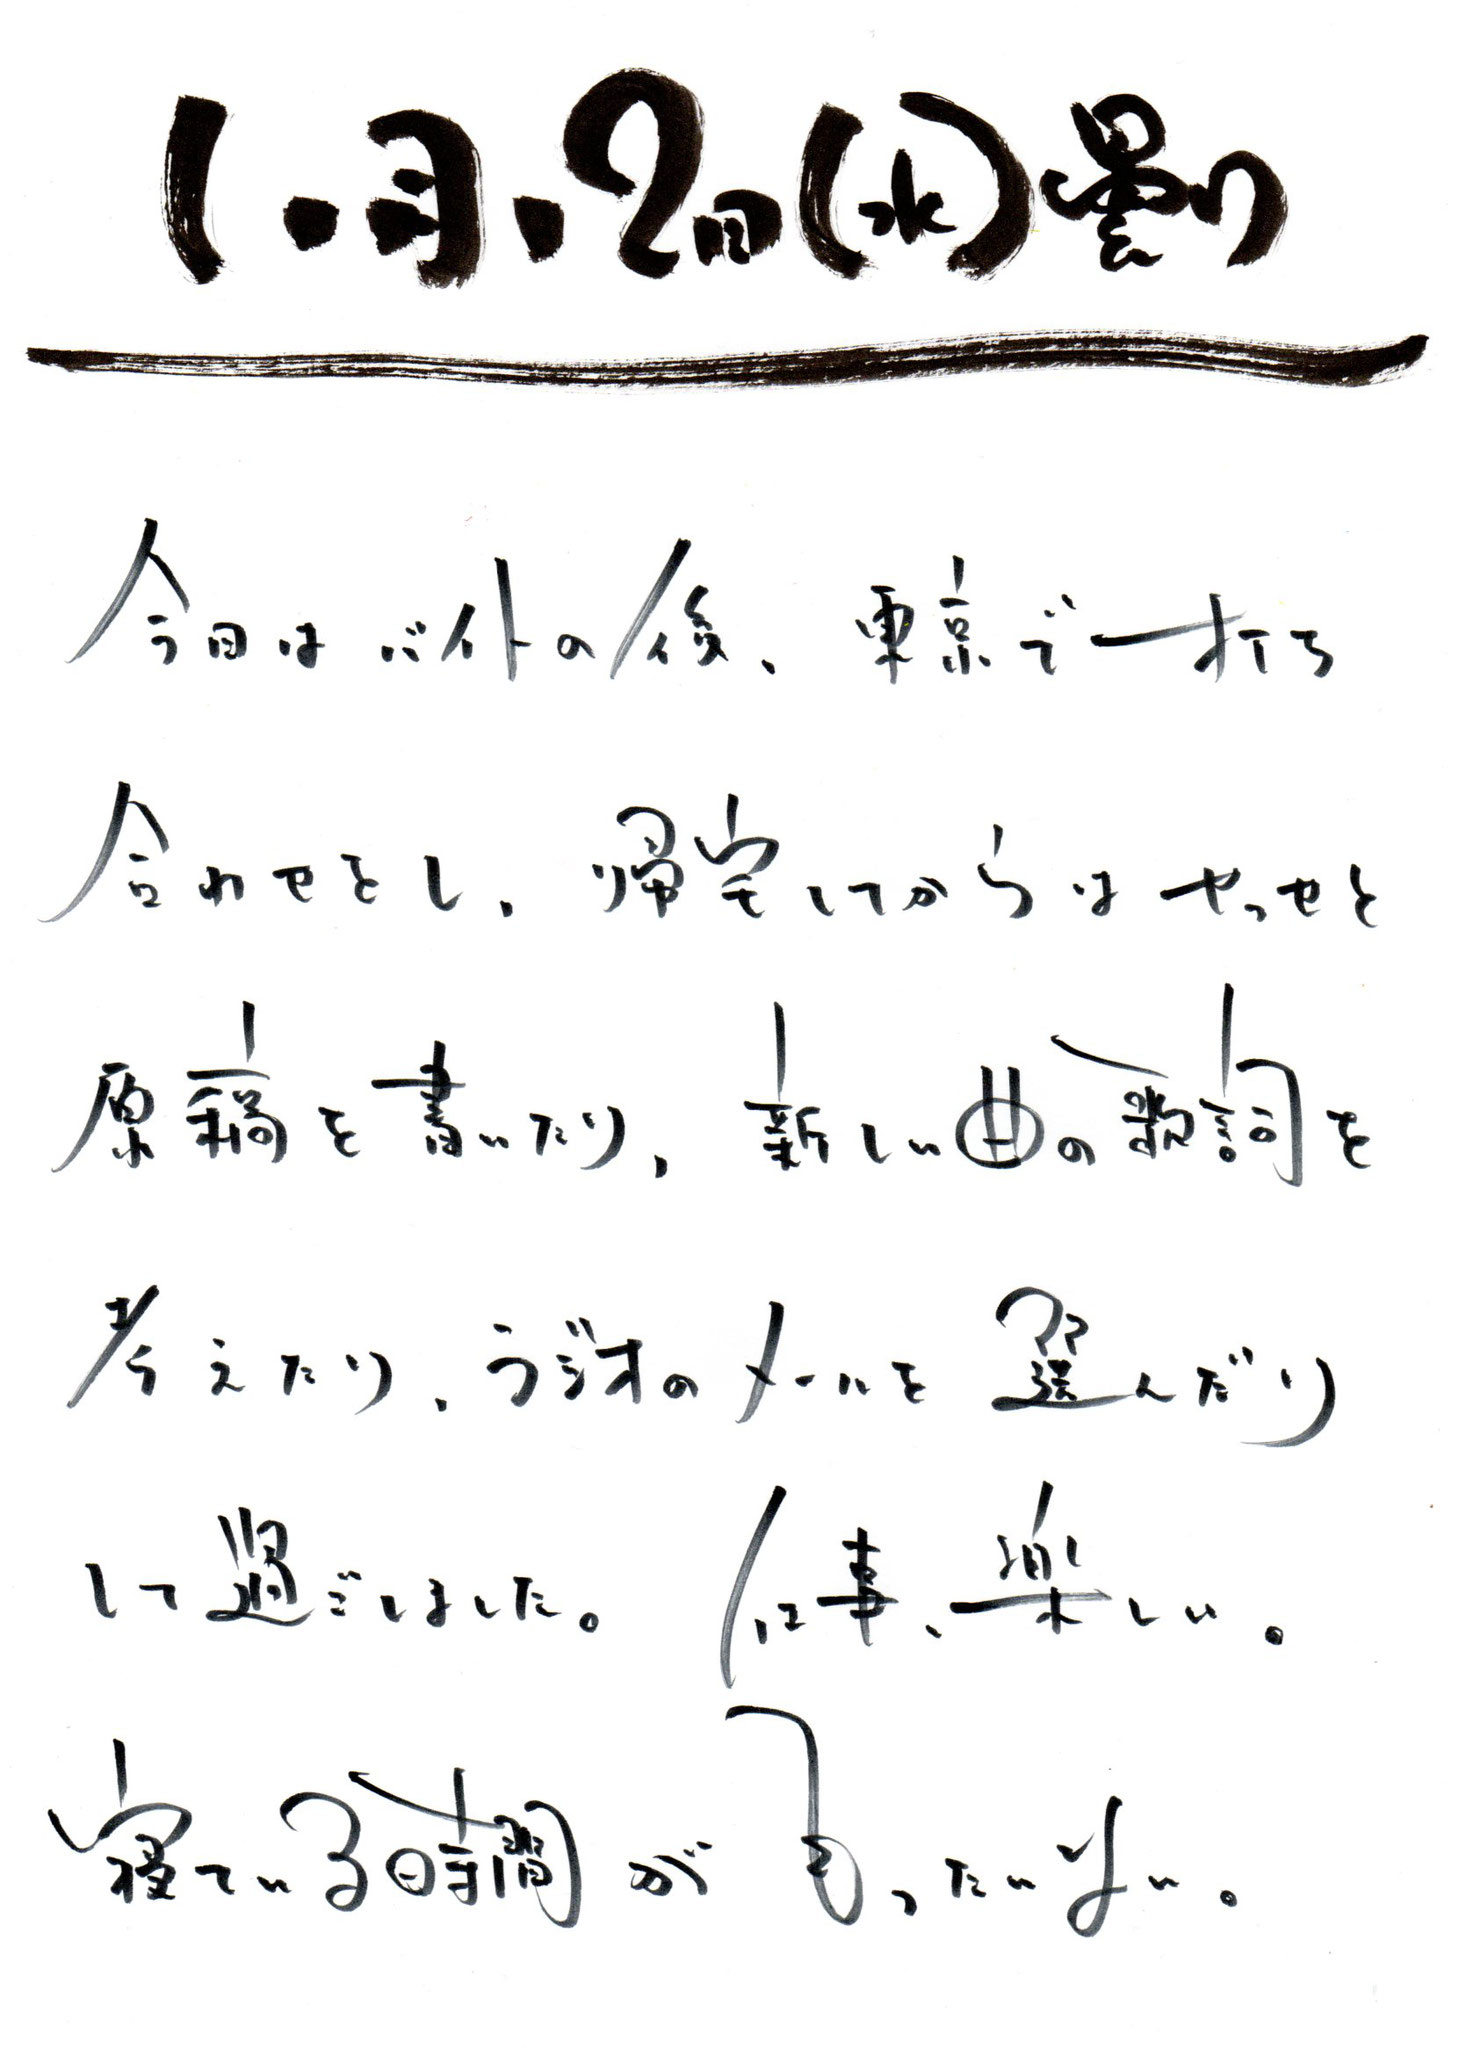 1月2日(水)曇り
今日はバイトの後、東京で打ち
合わせをし、帰宅してからはせっせと
原稿を書いたり、新しい曲の歌詞を
考えたり、ラジオのメールを選んだり
して過ごしました。仕事、楽しい。
寝ている時間がもったいない。